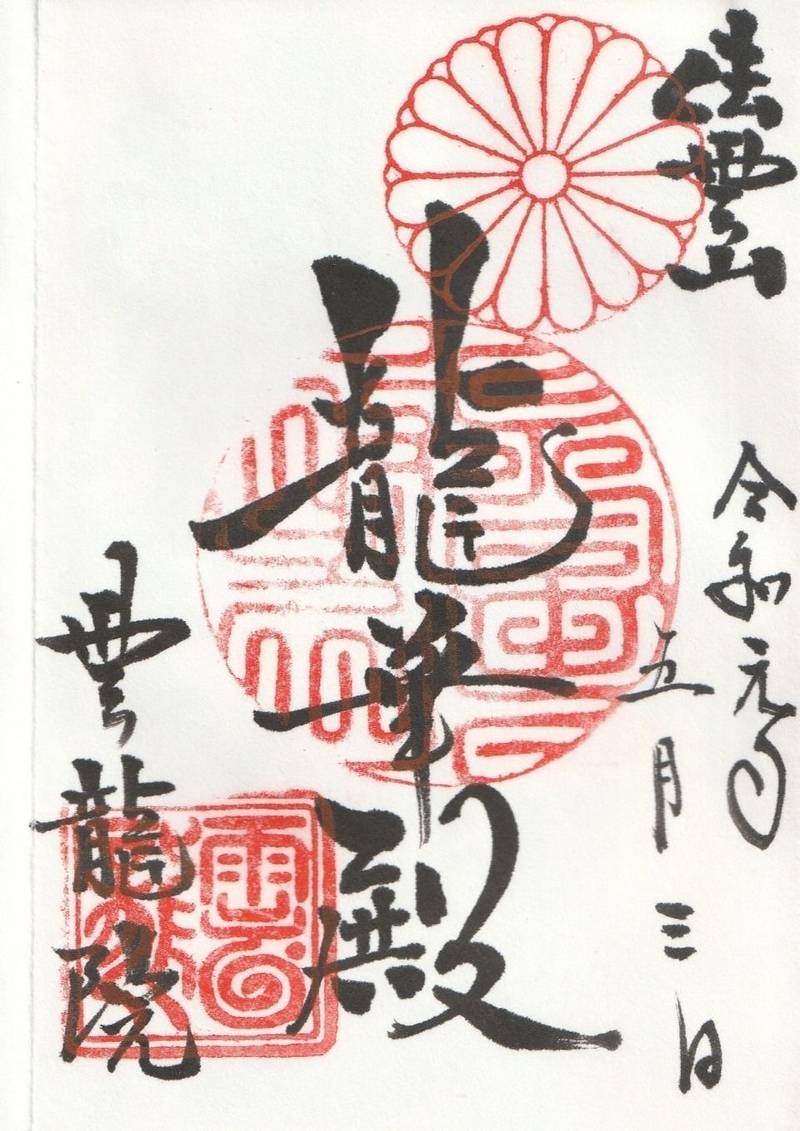 法雲山
令和元年
五月三日
龍華殿
雲龍院